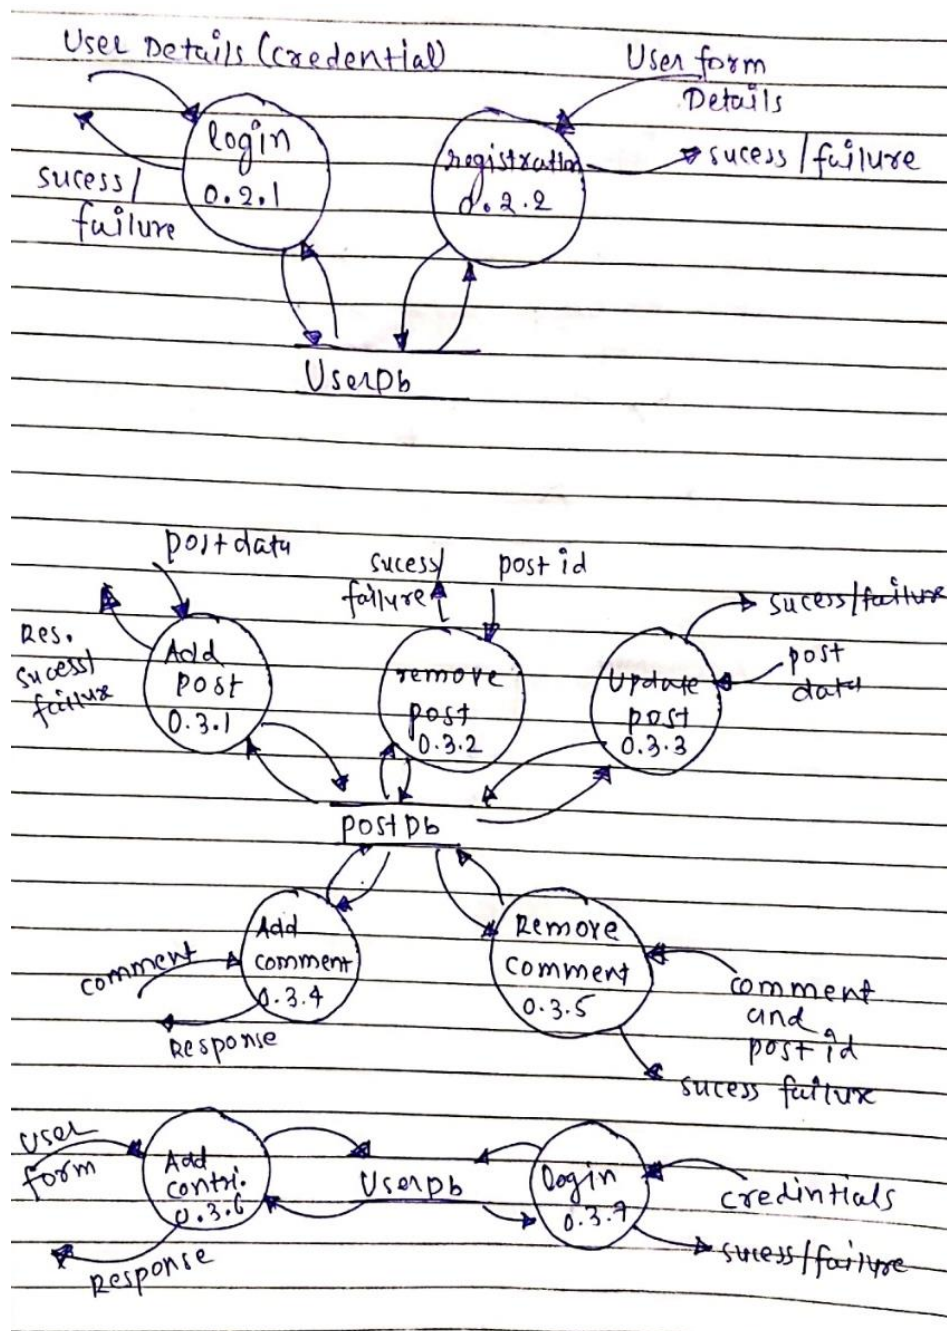 User Details (credential)
User form
Details
login
0.2.1
registration
0.2.2
sucess / failure
sucess /
failure
UserDb
post data
sucess/
failure
post id
sucess/failure
Res.
sucess/
failure
Add
post
0.3.1
remove
post
0.3.2
Update
post
0.3.3
post
data
post Db
Add
comment
0.3.4
comment
Response
Remove
comment
0.3.5
comment
and
post id
sucess failure
user
form
Add
contri.
0.3.6
Response
UserDb
login
0.3.7
credintials
sucess/failure